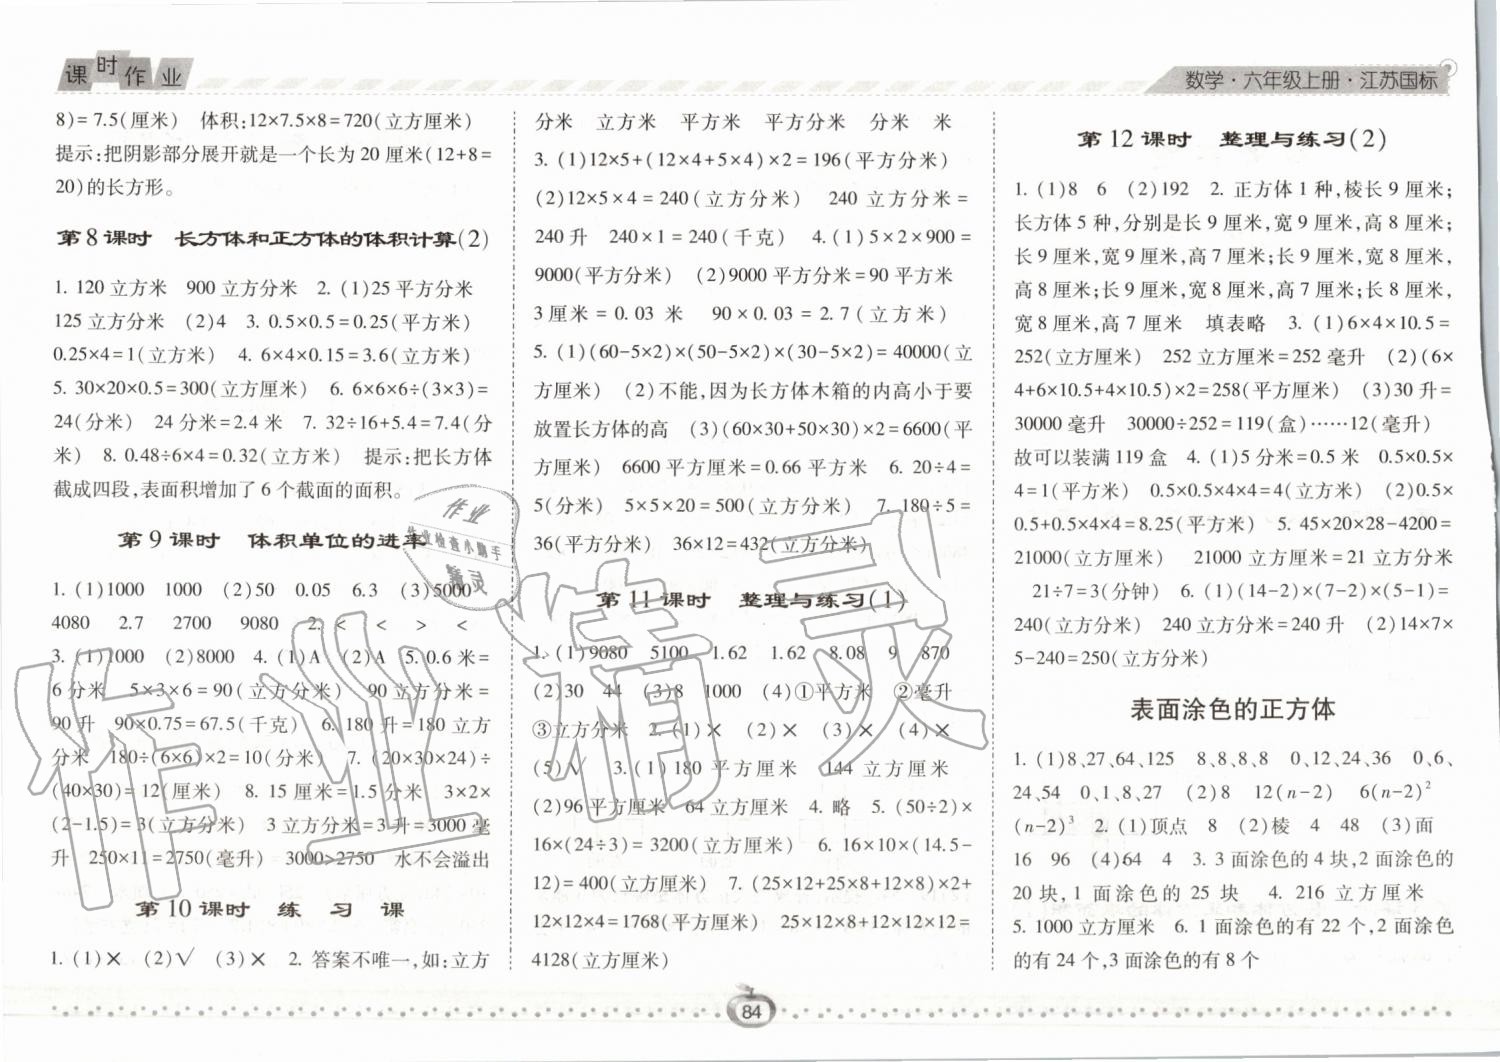 课时作业
数学·六年级上册·江苏国标
8)=7.5(厘米)　体积:12×7.5×8=720(立方厘米)
提示:把阴影部分展开就是一个长为 20 厘米(12+8=
20)的长方形。
第 8 课时　长方体和正方体的体积计算(2)
1. 120 立方米　900 立方分米　2. (1)25 平方分米
125 立方分米　(2)4　3. 0.5×0.5=0.25(平方米)
0.25×4=1(立方米)　4. 6×4×0.15=3.6(立方米)
5. 30×20×0.5=300(立方厘米)　6. 6×6×6÷(3×3)=
24(分米)　24 分米=2.4 米　7. 32÷16+5.4=7.4(分
米)　8. 0.48÷6×4=0.32(立方米)　提示:把长方体
截成四段,表面积增加了 6 个截面的面积。
第 9 课时　体积单位的进率
1. (1)1000　1000　(2)50　0.05　6.3　(3)5000
4080　2.7　2700　9080　2. <　<　>　<
3. (1)1000　(2)8000　4. (1)A　(2)A　5. 0.6 米=
6 分米　5×3×6=90(立方分米)　90 立方分米=
90 升　90×0.75=67.5(千克)　6. 180 升=180 立方
分米　180÷(6×6)×2=10(分米)　7. (20×30×24)÷
(40×30)=12(厘米)　8. 15 厘米=1.5 分米　3×2×
(2-1.5)=3(立方分米)　3 立方分米=3 升=3000 毫
升　250×11=2750(毫升)　3000>2750　水不会溢出
第 10 课时　练　习　课
1. (1)×　(2)√　(3)×　2. 答案不唯一,如:立方
分米　立方米　平方米　平方分米　分米　米
3. (1)12×5+(12×4+5×4)×2=196(平方分米)
(2)12×5×4=240(立方分米)　240 立方分米=
240 升　240×1=240(千克)　4. (1)5×2×900=
9000(平方分米)　(2)9000 平方分米=90 平方米
3 厘米=0.03 米　90×0.03=2.7(立方米)
5. (1)(60-5×2)×(50-5×2)×(30-5×2)=40000(立
方厘米)　(2)不能,因为长方体木箱的内高小于要
放置长方体的高　(3)(60×30+50×30)×2=6600(平
方厘米)　6600 平方厘米=0.66 平方米　6. 20÷4=
5(分米)　5×5×20=500(立方分米)　7. 180÷5=
36(平方分米)　36×12=432(立方分米)
第 11 课时　整理与练习(1)
1. (1)9080　5100　1.62　1.62　8.08　9　870
(2)30　44　(3)8　1000　(4)①平方米　②毫升
③立方分米　2. (1)×　(2)×　(3)×　(4)×
(5)√　3. (1)180 平方厘米　144 立方厘米
(2)96 平方厘米　64 立方厘米　4. 略　5. (50÷2)×
16×(24÷3)=3200(立方厘米)　6. 16×10×(14.5-
12)=400(立方厘米)　7. (25×12+25×8+12×8)×2+
12×12×4=1768(平方厘米)　25×12×8+12×12×12=
4128(立方厘米)
第 12 课时　整理与练习(2)
1. (1)8　6　(2)192　2. 正方体 1 种,棱长 9 厘米;
长方体 5 种,分别是长 9 厘米,宽 9 厘米,高 8 厘米;
长 9 厘米,宽 9 厘米,高 7 厘米;长 9 厘米,宽 8 厘米,
高 8 厘米;长 9 厘米,宽 8 厘米,高 7 厘米;长 8 厘米,
宽 8 厘米,高 7 厘米　填表略　3. (1)6×4×10.5=
252(立方厘米)　252 立方厘米=252 毫升　(2)(6×
4+6×10.5+4×10.5)×2=258(平方厘米)　(3)30 升=
30000 毫升　30000÷252=119(盒)……12(毫升)
故可以装满 119 盒　4. (1)5 分米=0.5 米　0.5×0.5×
4=1(平方米)　0.5×0.5×4×4=4(立方米)　(2)0.5×
0.5+0.5×4×4=8.25(平方米)　5. 45×20×28-4200=
21000(立方厘米)　21000 立方厘米=21 立方分米
21÷7=3(分钟)　6. (1)(14-2)×(7-2)×(5-1)=
240(立方分米)　240 立方分米=240 升　(2)14×7×
5-240=250(立方分米)
表面涂色的正方体
1. (1)8、27、64、125　8、8、8、8　0、12、24、36　0、6、
24、54　0、1、8、27　(2)8　12(n-2)　6(n-2)²
(n-2)³　2. (1)顶点　8　(2)棱　4　48　(3)面
16　96　(4)64　4　3. 3 面涂色的 4 块,2 面涂色的
20 块,1 面涂色的 25 块　4. 216 立方厘米
5. 1000 立方厘米　6. 1 面涂色的有 22 个,2 面涂色
的有 24 个,3 面涂色的有 8 个
84
作业
作业检查小助手
精灵
作业精灵